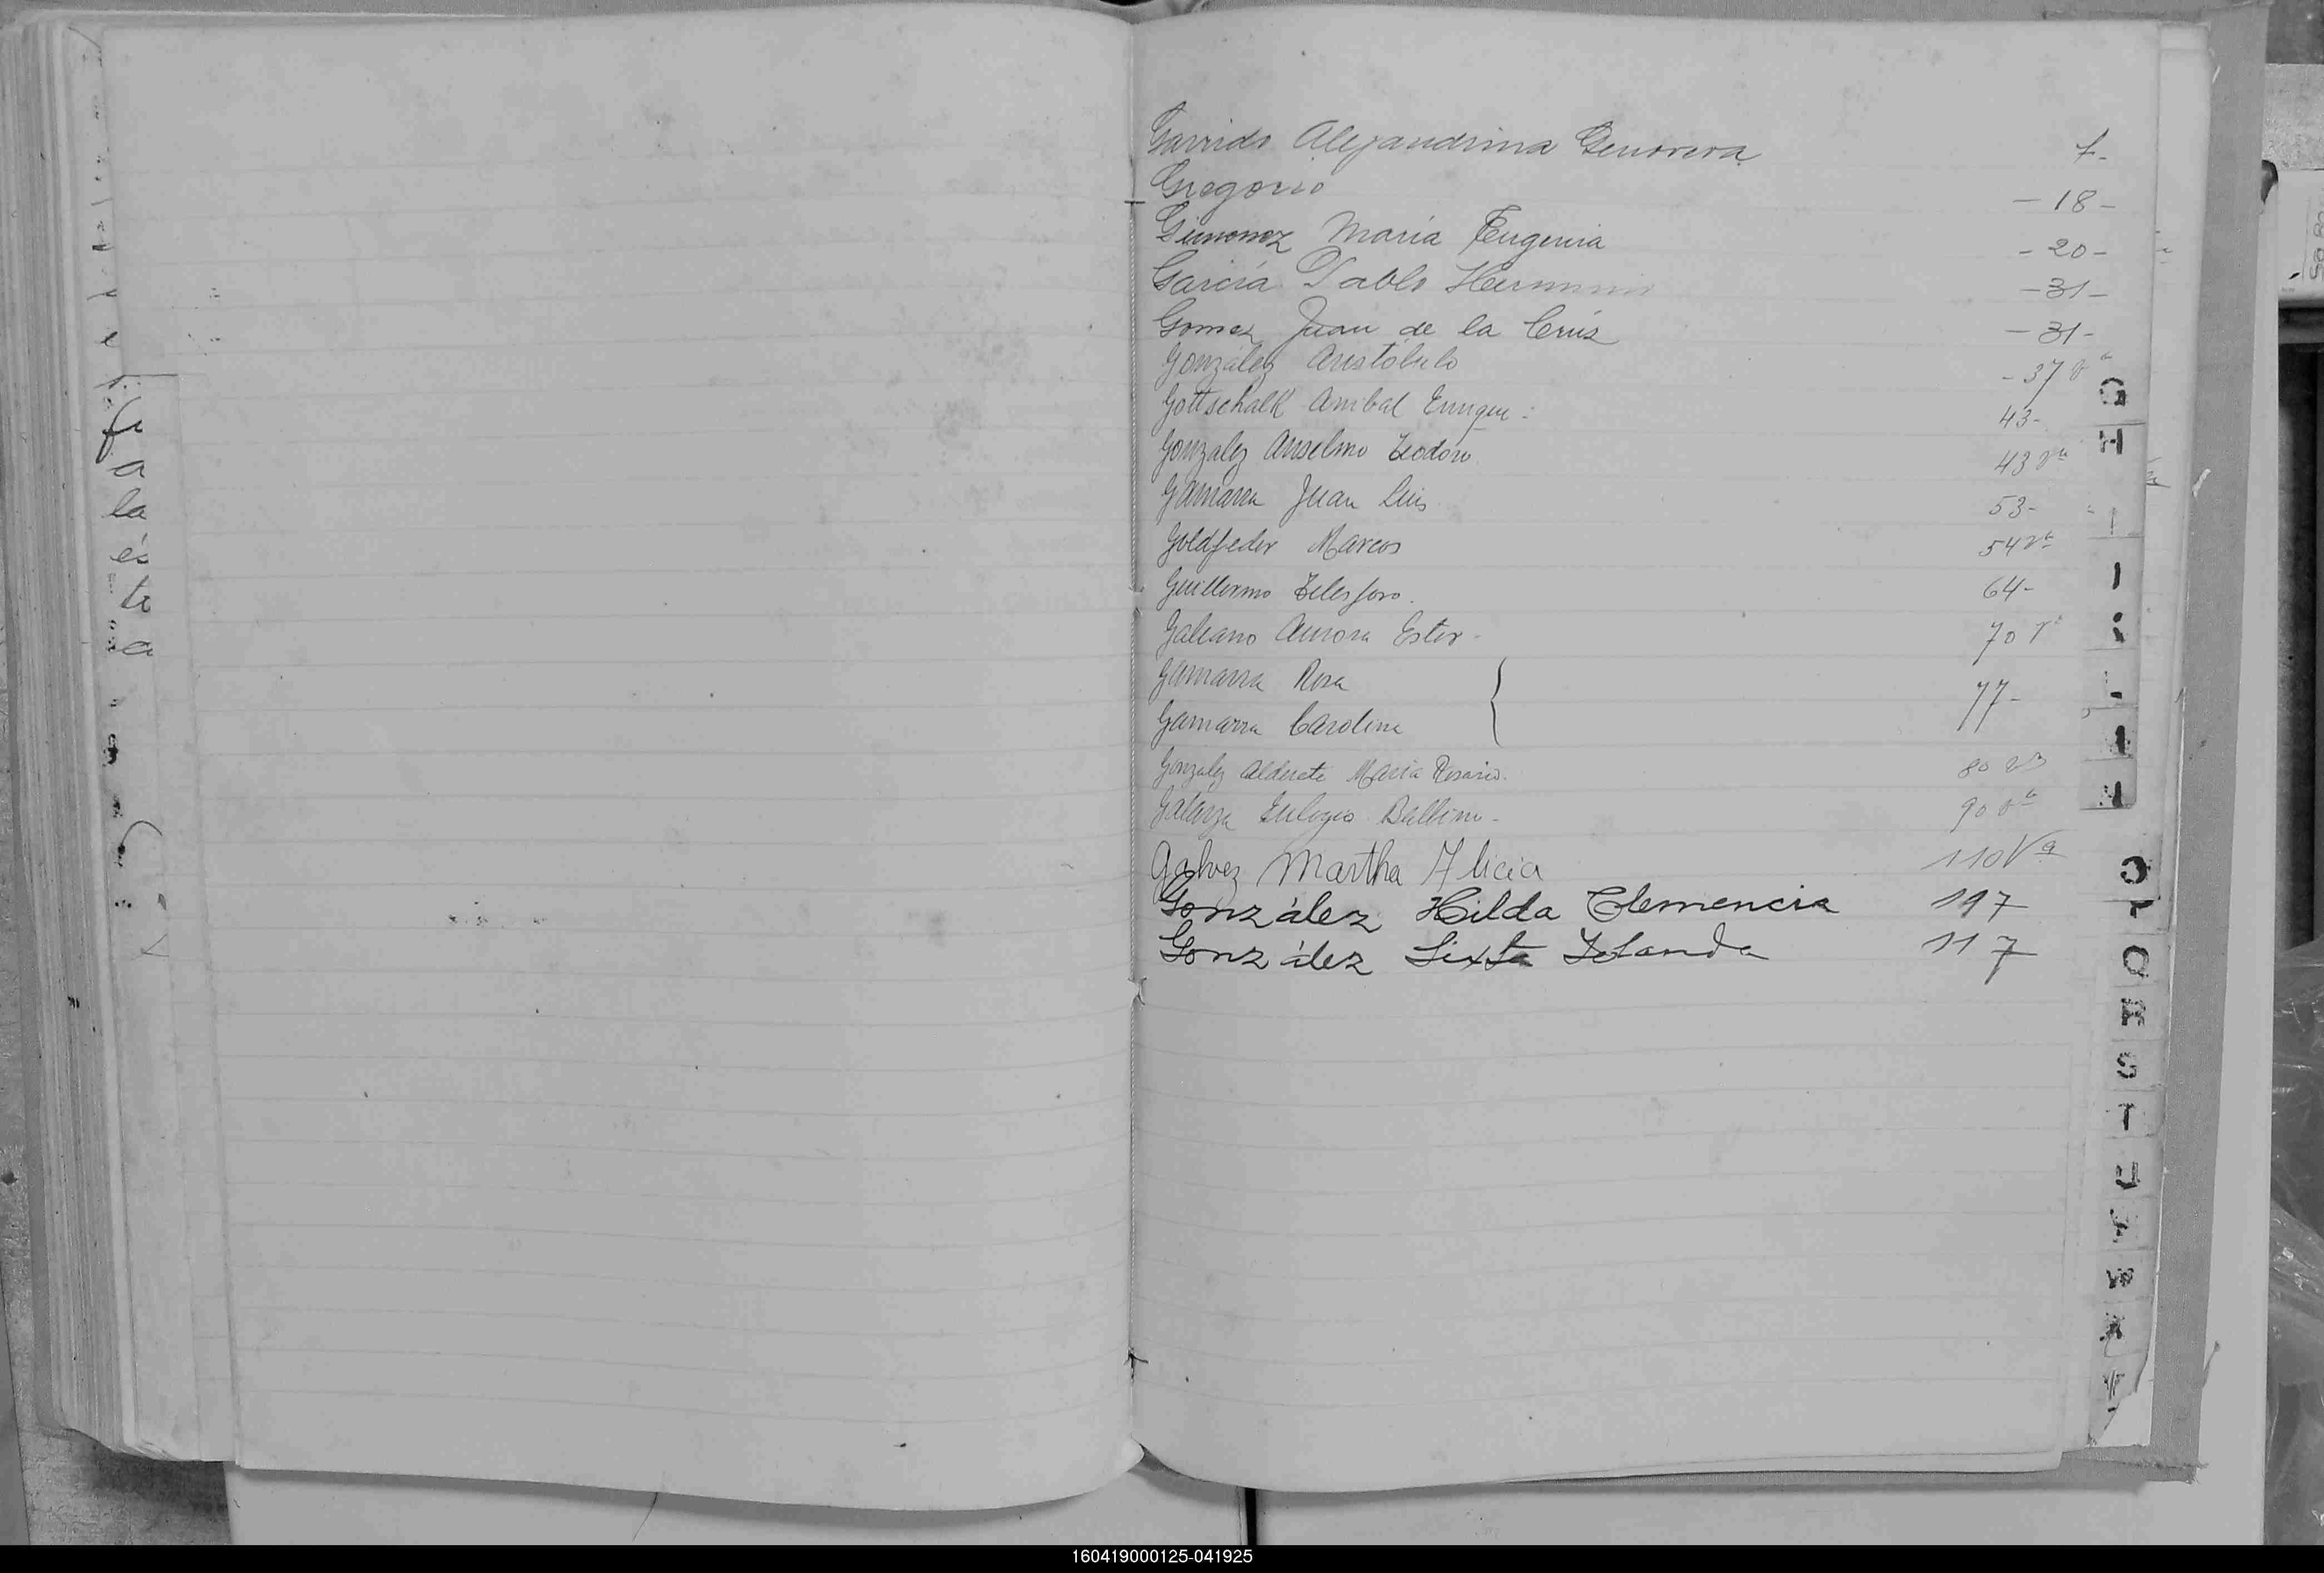 Garrido Alejandrina Genoveva f-
Gregorio -18-
Gimenez María Eugenia -20-
García Pablo -31-
Gomez Juan de la Crúz -31-
González Aristóbulo -37 va
Gottschalk Anibal Enrique 43-
Gonzalez Anselmo Teodoro 43 va
Gamarra Juan Luis 53-
Goldfeder Marcos 54 va
Guillermo Telesforo. 64-
Galeano Aurora Ester- 70 va
Gamarra Rosa
Gamarra Carolina 77-
Gonzalez Alderete María Rosario. 80 va
Galarza Eulogio Balbino- 90 va
Galvez Martha Alicia 110 Va
González Hilda Clemencia 197
González Sixta Yolanda 117
G
H
I
O
P
Q
R
S
T
U
W
X
Y
a
la
és
te
a
160419000125-041925